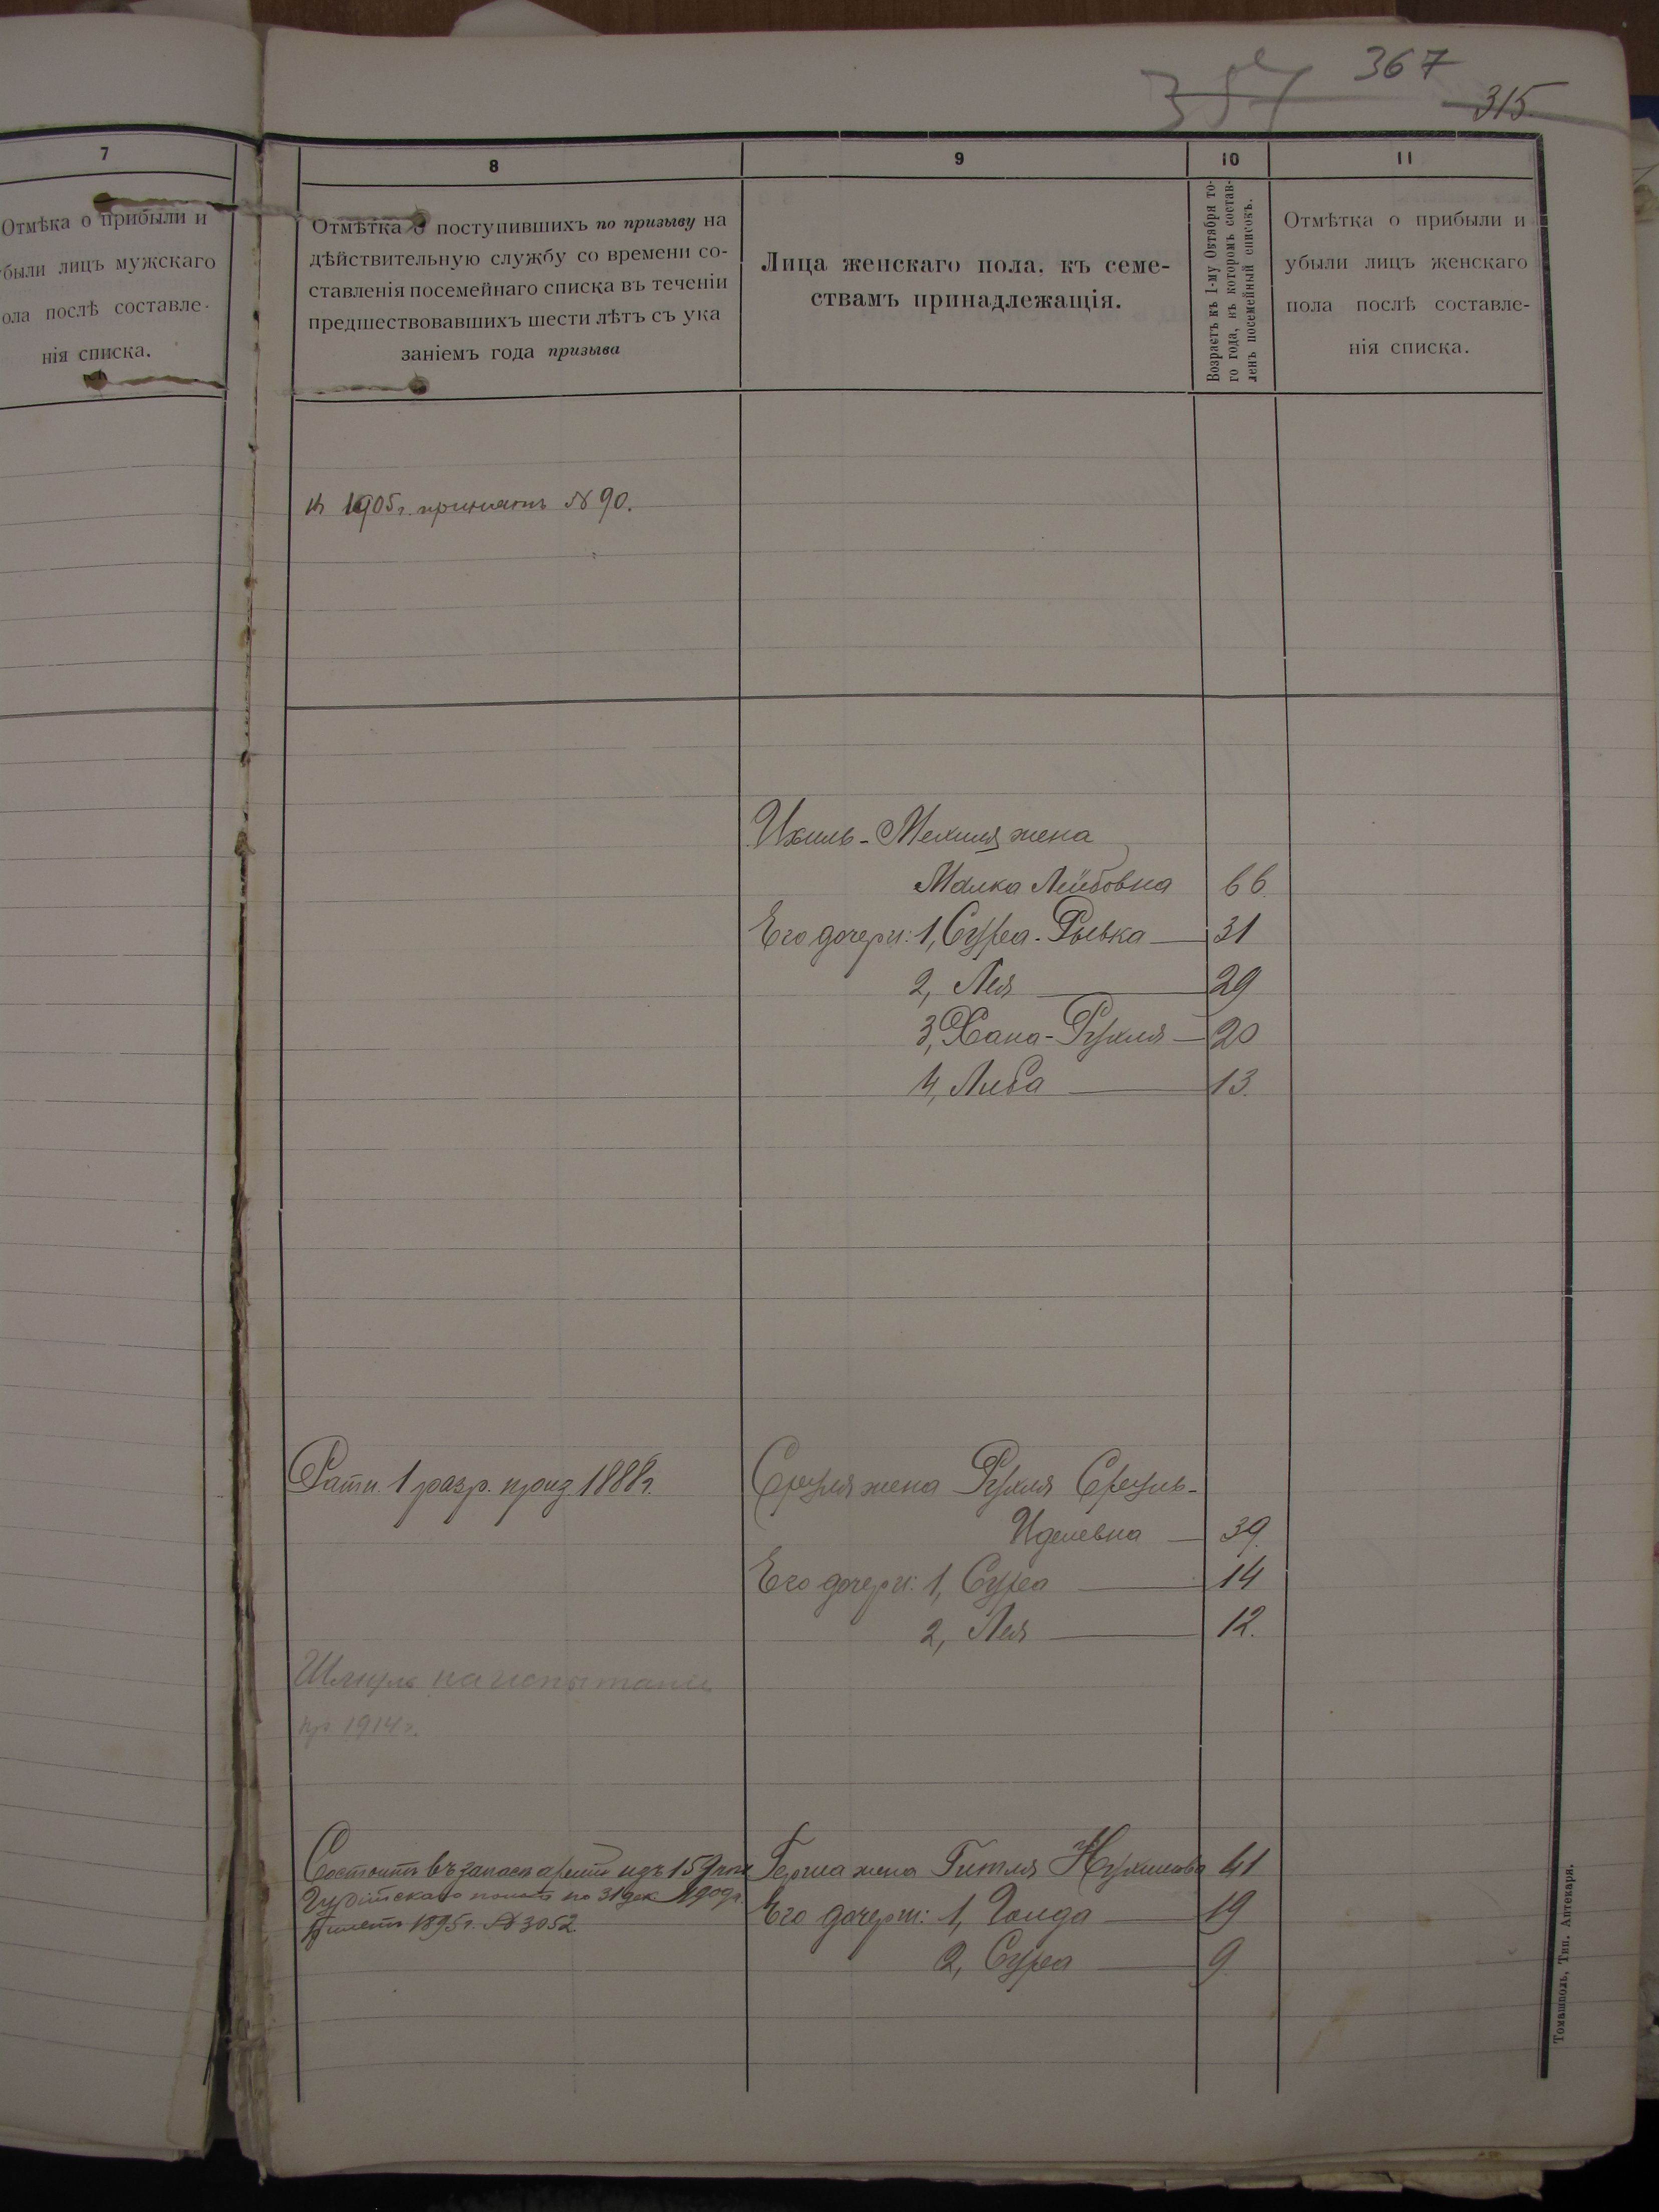 367
357
315
7
Отмѣка о прибыли и
были лицъ мужскаго
ола послѣ составле-
нія списка.
8
Отмѣтка о поступившихъ по призыву на
дѣйствительную службу со времени со-
ставленія посемейнаго списка въ теченіи
предшествовавшихъ шести лѣтъ съ ука
заніемъ года призыва
9
Лица женскаго пола, къ семе-
ствамъ принадлежащія.
10
Возрастъ къ 1-му Октября то-
го года, въ которомъ состав-
ленъ посемейный списокъ.
11
Отмѣтка о прибыли и
убыли лицъ женскаго
пола послѣ составле-
нія списка.
1905г. принятъ №90.
Ихиль-Мехиля жена
Малка Лейбовна 66.
Его дочери: 1, Сура-Рывка 31
2, Лея 29
3, Хана-Рухля 20
4, Либа 13.
Ратн. 1 разр. приз 1888г.
Сруля жена Рухля Сруль-
Иделевна 39.
Его дочери: 1, Сура 14
2, Лея 12.
Шмуль на испытаніи
пр 1914г.
Состоитъ въ запасѣ арміи изъ 159 пѣх
Гурійскаго полка по 31 дек 1909г.
билетъ 1895г. №3052.
Герша жена Гитля Нухимова 41
Его дочери: 1, Голда 19
2, Сура 9
Томашполь, Тип. Аптекаря.